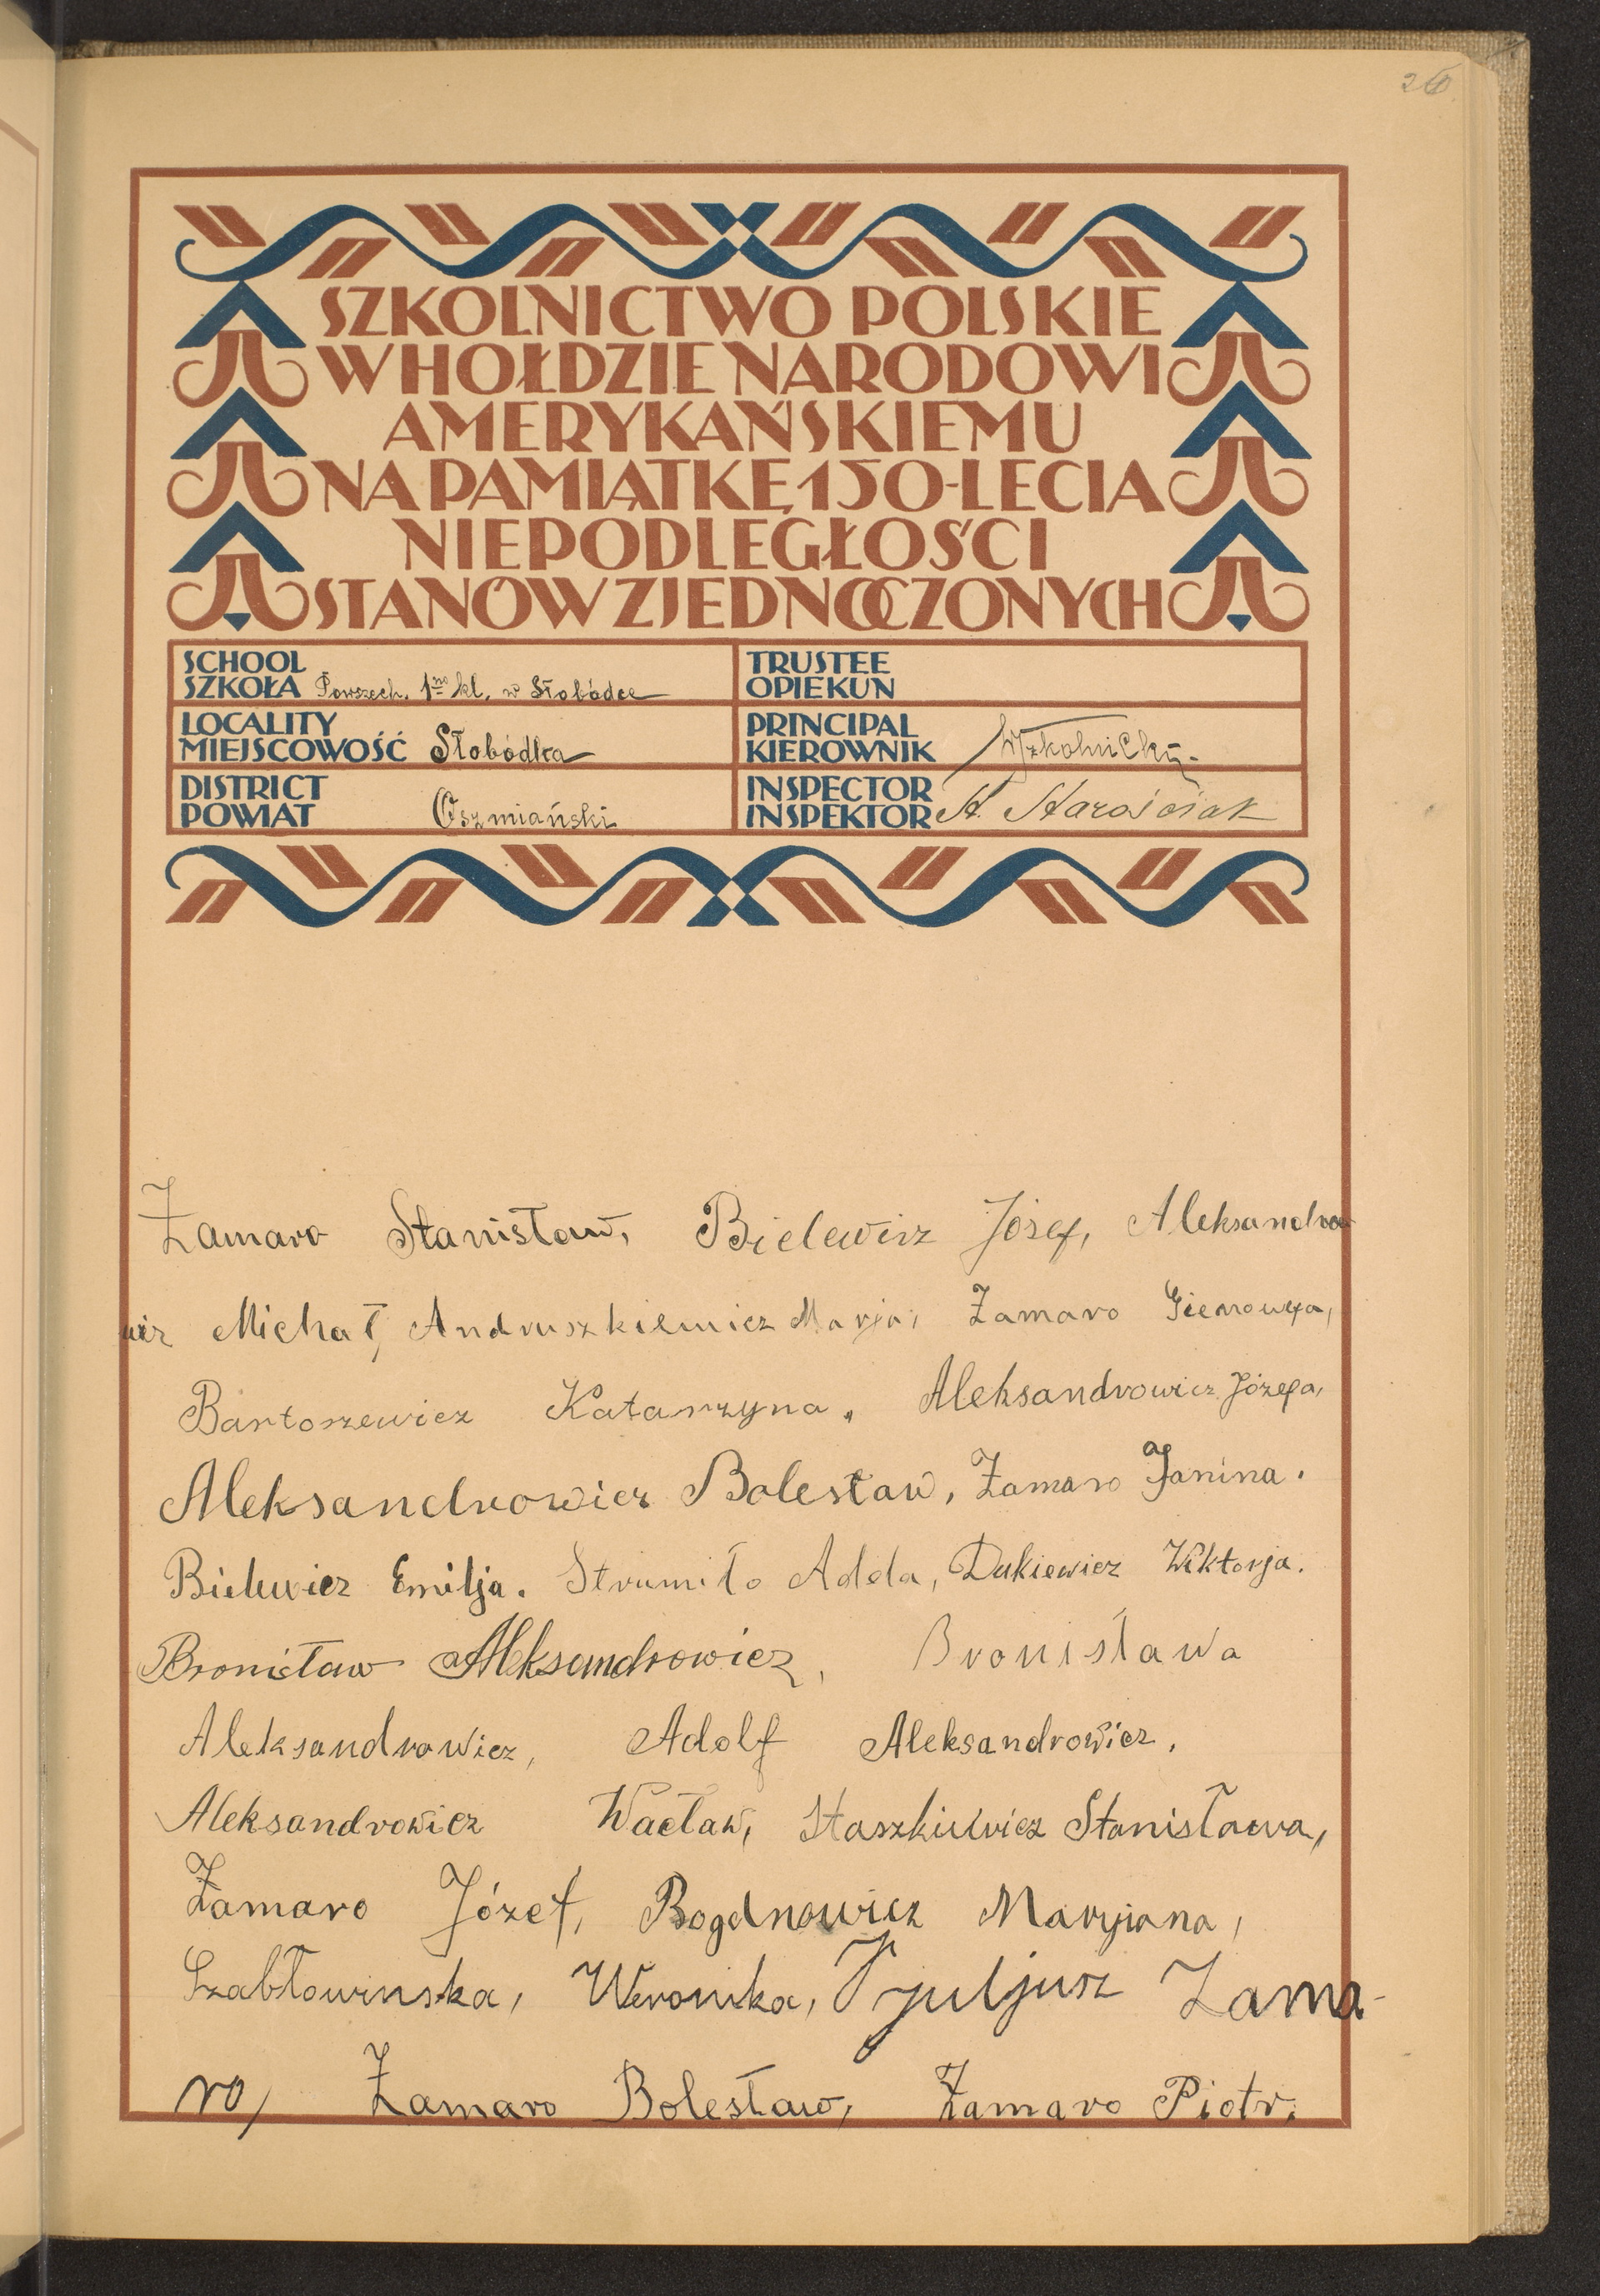 26
SZKOLNICTWO POLSKIE
W HOŁDZIE NARODOWI
AMERYKAŃSKIEMU
NA PAMIĄTKĘ 150-LECIA
NIEPODLEGŁOŚCI
STANÓW ZJEDNOCZONYCH
SCHOOL
SZKOŁA Powszech. 1no kl. w Słobódce
TRUSTEE
OPIEKUN
LOCALITY
MIEJSCOWOŚĆ Słobódka
PRINCIPAL
KIEROWNIK
DISTRICT
POWIAT Oszmiański
INSPECTOR
INSPEKTOR St. Starościak
Żamaro Stanisław, Bielewicz Józef, Aleksandro
wicz Michał, Andruszkiewicz Marja, Żamaro Gienowefa,
Bartoszewicz Katarzyna, Aleksandrowicz Józefa,
Aleksandrowicz Bolesław, Żamaro Janina.
Bielewicz Emilja. Strumiło Adela, Dukiewicz Wiktorja.
Bronisław Aleksandrowicz, Bronisława
Aleksandrowicz, Adolf Aleksandrowicz,
Aleksandrowicz Wacław, Staszkiewicz Stanisława,
Żamaro Józef, Bogdnowicz Maryjana,
Szabłowinska, Weronika, Juljusz Żama-
ro, Żamaro Bolesław, Żamaro Piotr.